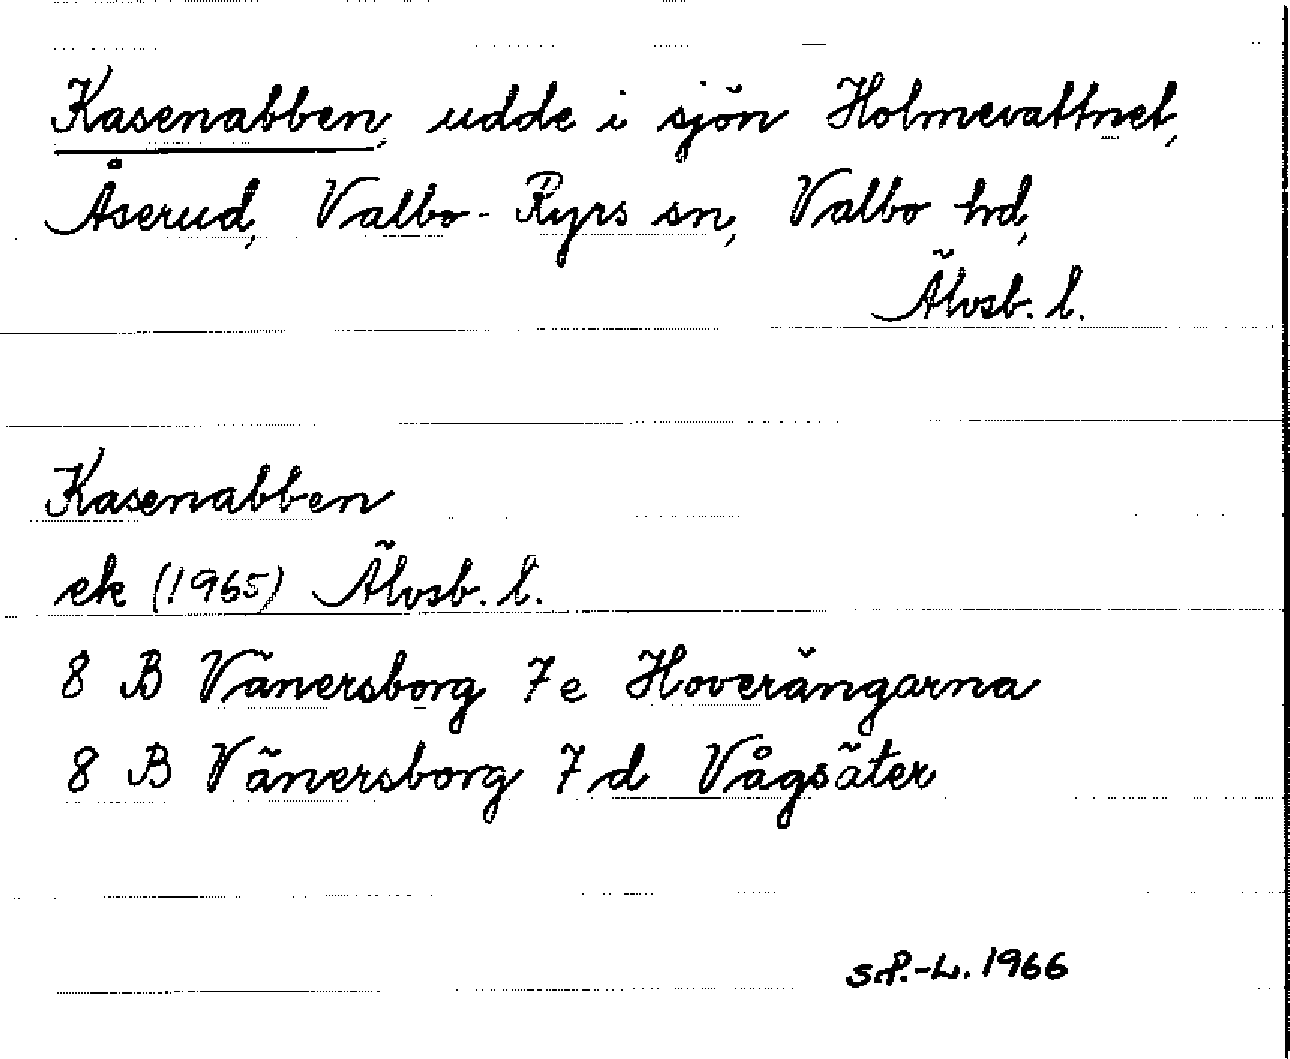 Kasenabben, udde i sjön Holmevattnet,
Åserud, Valbo-Ryrs sn, Valbo hd,
Älvsb. l.
Kasenabben
ek (1965) Älvsb. l.
8 B Vänersborg 7e Hoverängarna
8 B Vänersborg 7d Vågsäter
S.P.-L. 1966